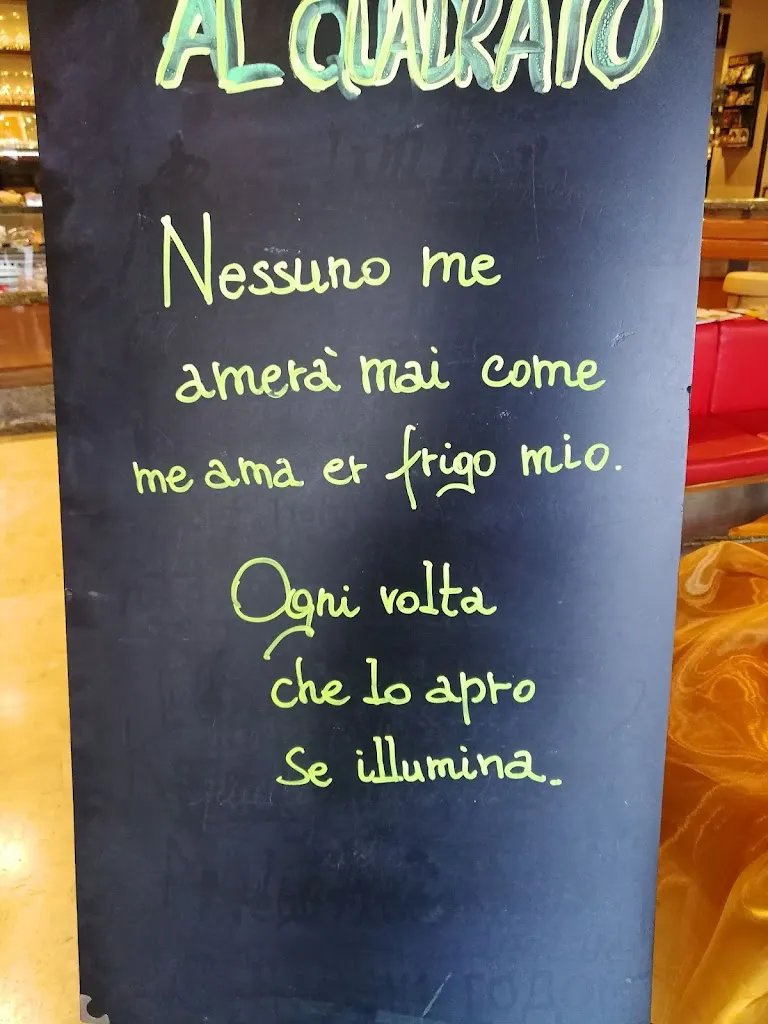 AL QUADRATO
Nessuno me
amerà mai come
me ama er frigo mio.
Ogni volta
che lo apro
se illumina.